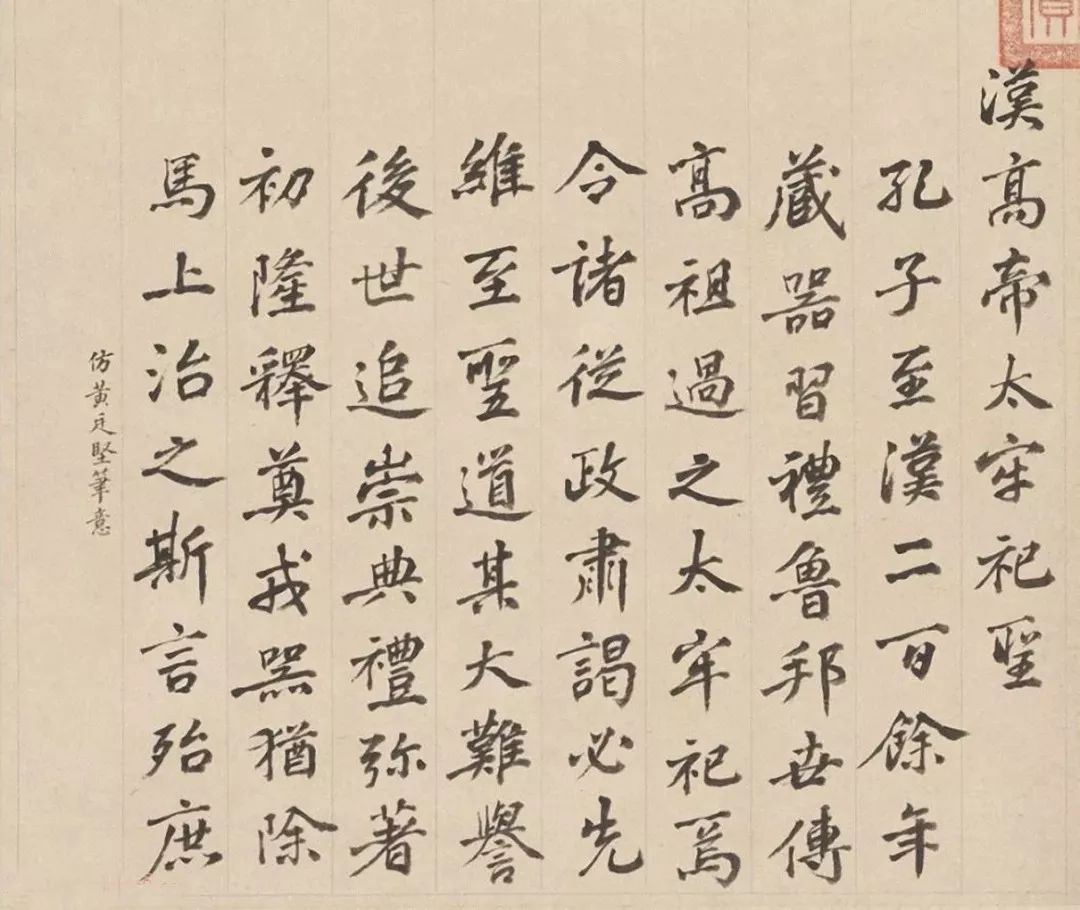 漢髙帝太牢祀聖
孔子至漢二百餘年
蔵器習禮魯邦世傳
髙祖過之太牢祀焉
令諸從政肅謁必先
維至聖道其大難譽
後世追崇典禮弥著
初隆釋奠戎器猶除
馬上治之斯言殆庶
仿黄廷堅筆意